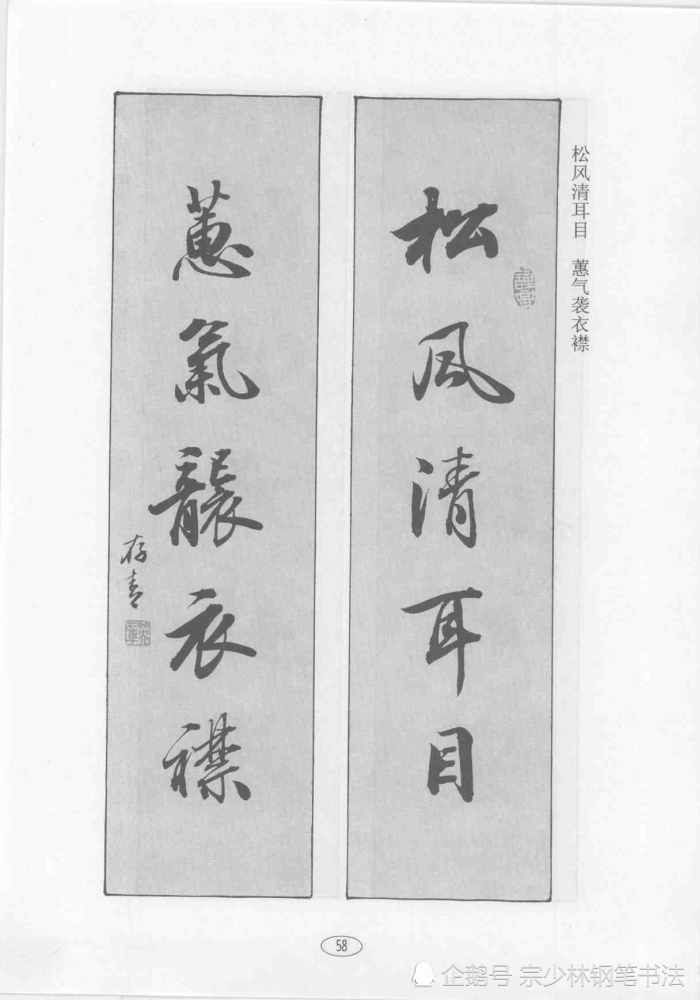 松风清耳目 蕙气袭衣襟
松风清耳目
蕙氣襲衣襟
存青
58
企鹅号 宗少林钢笔书法